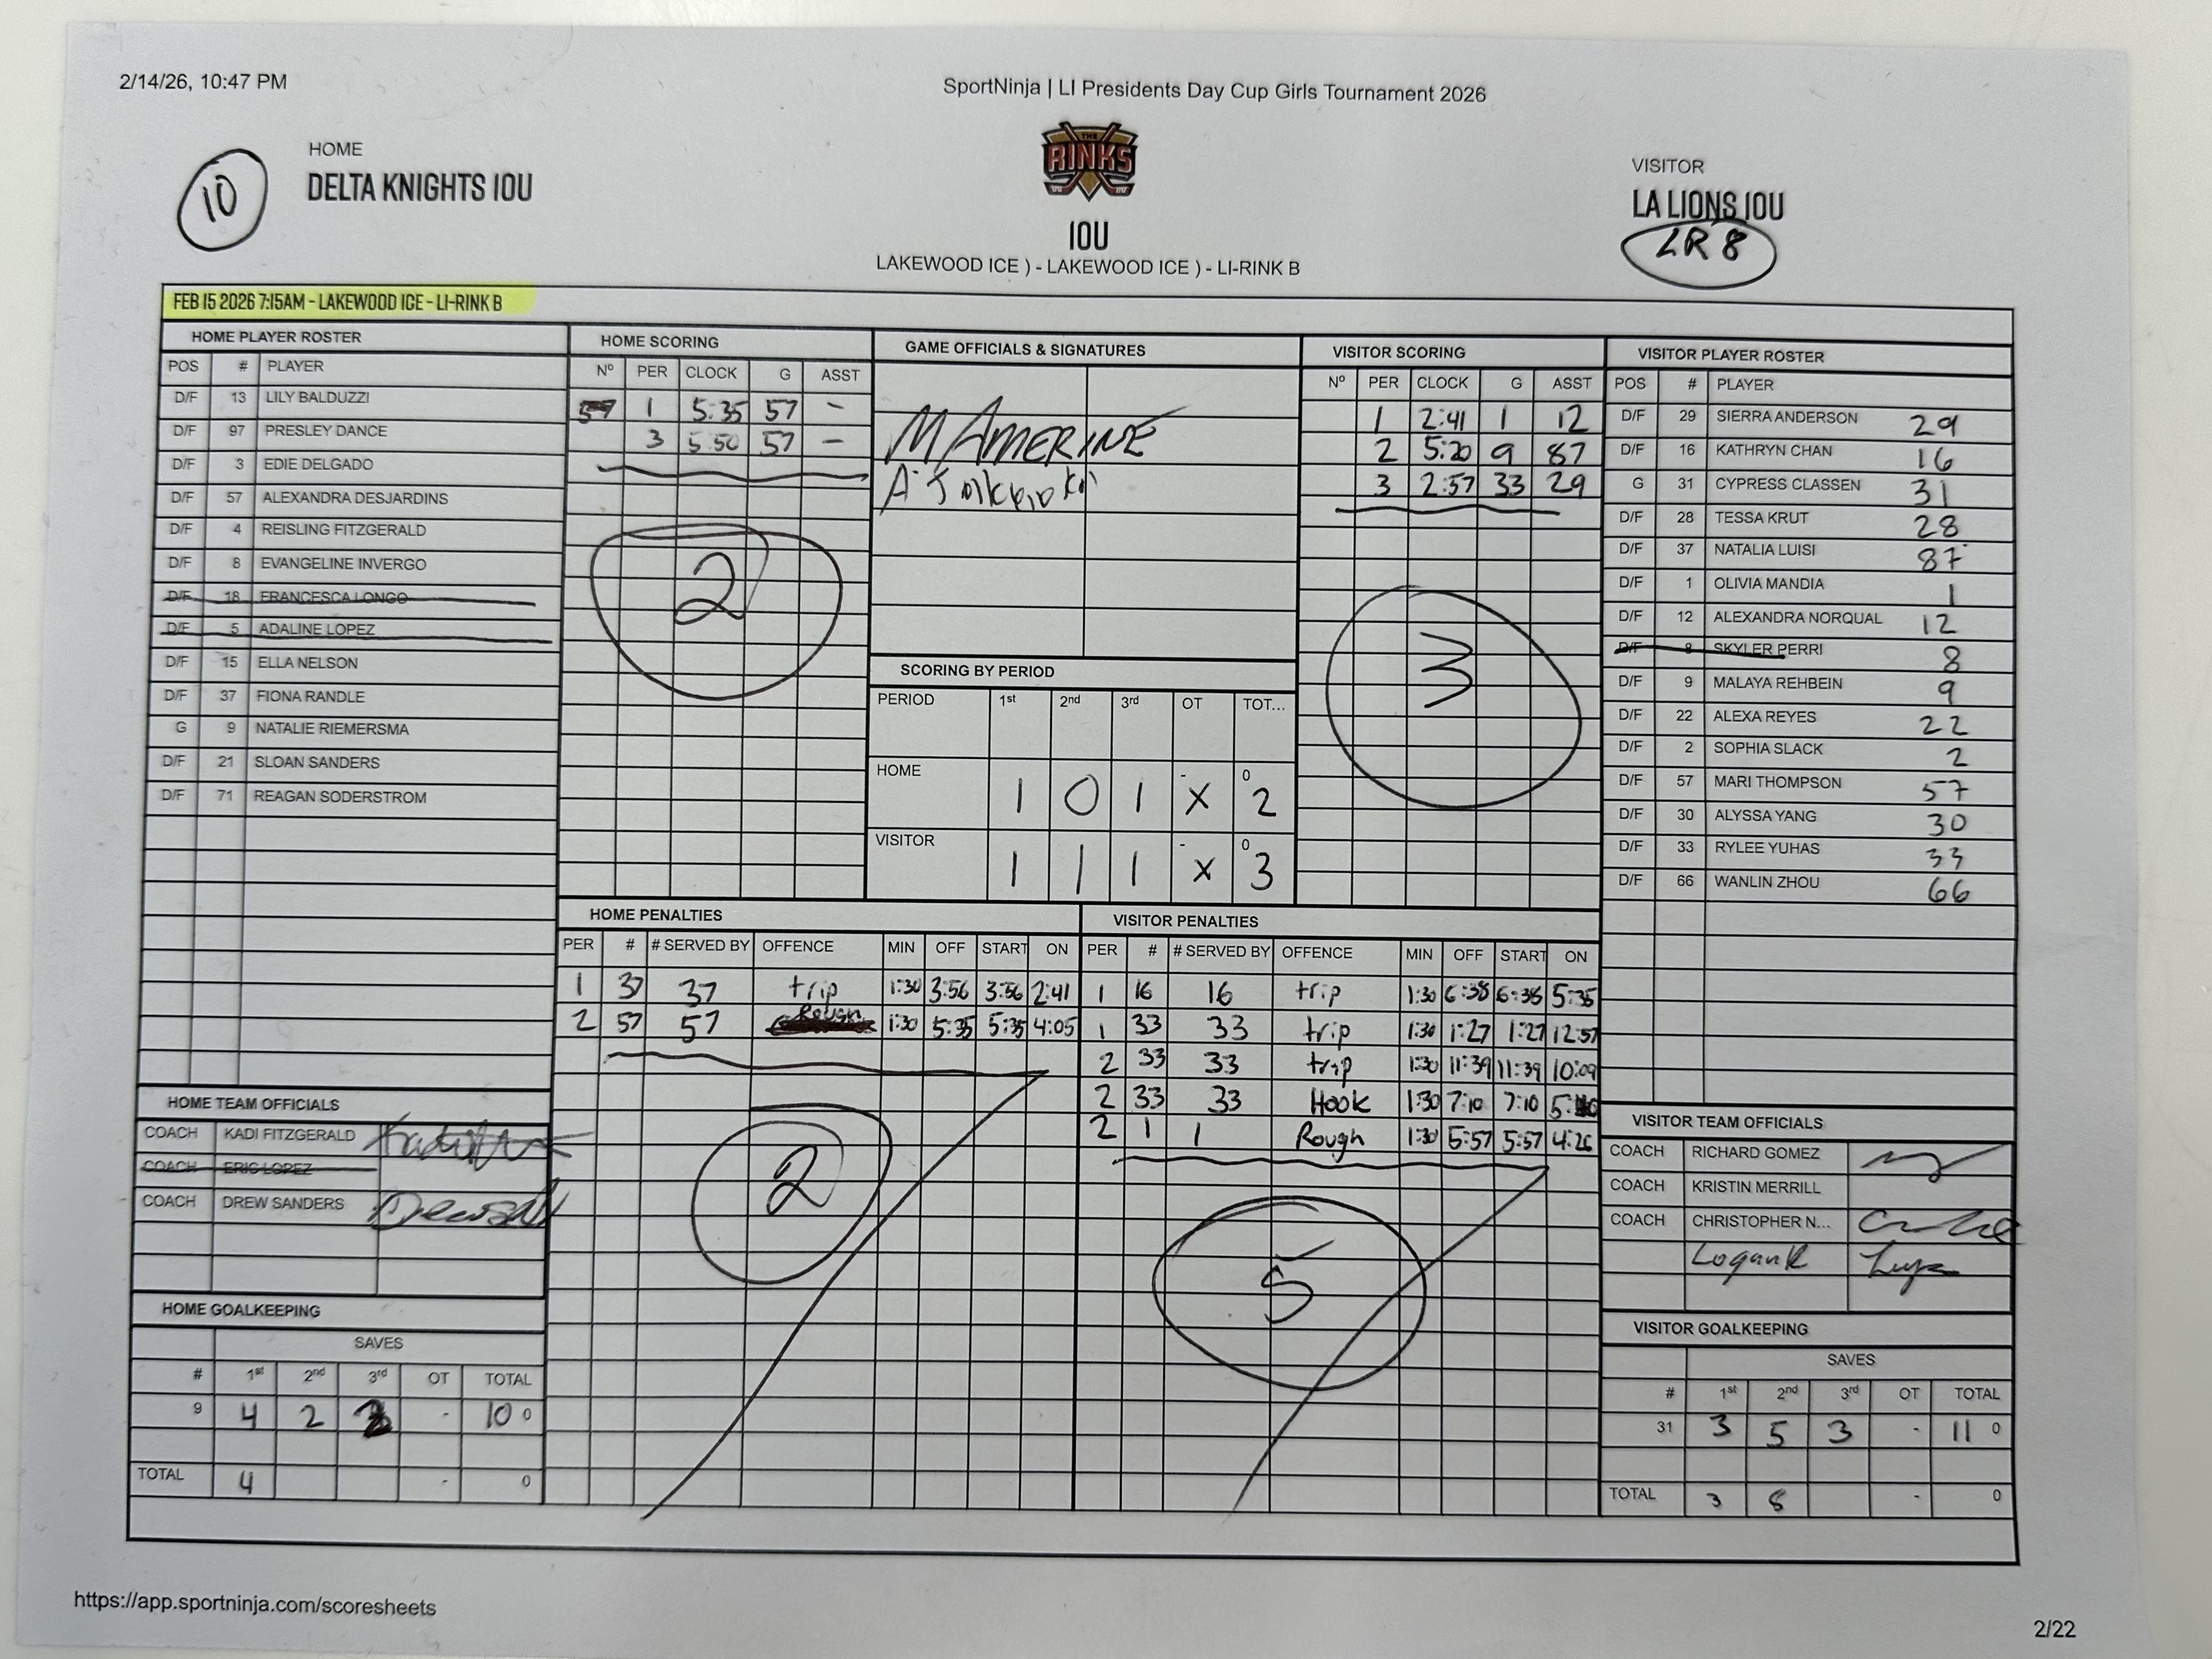 2/14/26, 10:47 PM
SportNinja | LI Presidents Day Cup Girls Tournament 2026
10
HOME
DELTA KNIGHTS 10U
THE RINKS
10U
LAKEWOOD ICE ) - LAKEWOOD ICE ) - LI-RINK B
VISITOR
LA LIONS 10U
LR 8
FEB 15 2026 7:15AM - LAKEWOOD ICE - LI-RINK B
HOME PLAYER ROSTER
POS # PLAYER
D/F 13 LILY BALDUZZI
D/F 97 PRESLEY DANCE
D/F 3 EDIE DELGADO
D/F 57 ALEXANDRA DESJARDINS
D/F 4 REISLING FITZGERALD
D/F 8 EVANGELINE INVERGO
D/F 18 FRANCESCA LONGO
D/F 5 ADALINE LOPEZ
D/F 15 ELLA NELSON
D/F 37 FIONA RANDLE
G 9 NATALIE RIEMERSMA
D/F 21 SLOAN SANDERS
D/F 71 REAGAN SODERSTROM
HOME SCORING
Nº PER CLOCK G ASST
57 1 5:35 57 -
3 5:50 57 -
2
GAME OFFICIALS & SIGNATURES
M AMERINE
SCORING BY PERIOD
PERIOD 1st 2nd 3rd OT TOT...
HOME 1 0 1 - X 0 2
VISITOR 1 1 1 - X 0 3
VISITOR SCORING
Nº PER CLOCK G ASST
1 2:41 1 12
2 5:20 9 87
3 2:57 33 29
3
VISITOR PLAYER ROSTER
POS # PLAYER
D/F 29 SIERRA ANDERSON 29
D/F 16 KATHRYN CHAN 16
G 31 CYPRESS CLASSEN 31
D/F 28 TESSA KRUT 28
D/F 37 NATALIA LUISI 87
D/F 1 OLIVIA MANDIA 1
D/F 12 ALEXANDRA NORQUAL 12
D/F 8 SKYLER PERRI 8
D/F 9 MALAYA REHBEIN 9
D/F 22 ALEXA REYES 22
D/F 2 SOPHIA SLACK 2
D/F 57 MARI THOMPSON 57
D/F 30 ALYSSA YANG 30
D/F 33 RYLEE YUHAS 33
D/F 66 WANLIN ZHOU 66
HOME PENALTIES
PER # # SERVED BY OFFENCE MIN OFF START ON
1 37 37 trip 1:30 3:56 3:56 2:41
2 57 57 Rough 1:30 5:35 5:35 4:05
2
VISITOR PENALTIES
PER # # SERVED BY OFFENCE MIN OFF START ON
1 16 16 trip 1:30 6:38 6:38 5:35
1 33 33 trip 1:30 1:27 1:27 12:57
2 33 33 trip 1:30 11:39 11:39 10:09
2 33 33 Hook 1:30 7:10 7:10
2 1 1 Rough 1:30 5:57 5:57 4:26
5
HOME TEAM OFFICIALS
COACH KADI FITZGERALD
COACH ERIC LOPEZ
COACH DREW SANDERS
HOME GOALKEEPING
SAVES
# 1st 2nd 3rd OT TOTAL
9 4 2 - 10 0
TOTAL 4 - 0
VISITOR TEAM OFFICIALS
COACH RICHARD GOMEZ
COACH KRISTIN MERRILL
COACH CHRISTOPHER N...
Logan R
VISITOR GOALKEEPING
SAVES
# 1st 2nd 3rd OT TOTAL
31 3 5 3 - 11 0
TOTAL 3 8 - 0
https://app.sportninja.com/scoresheets
2/22